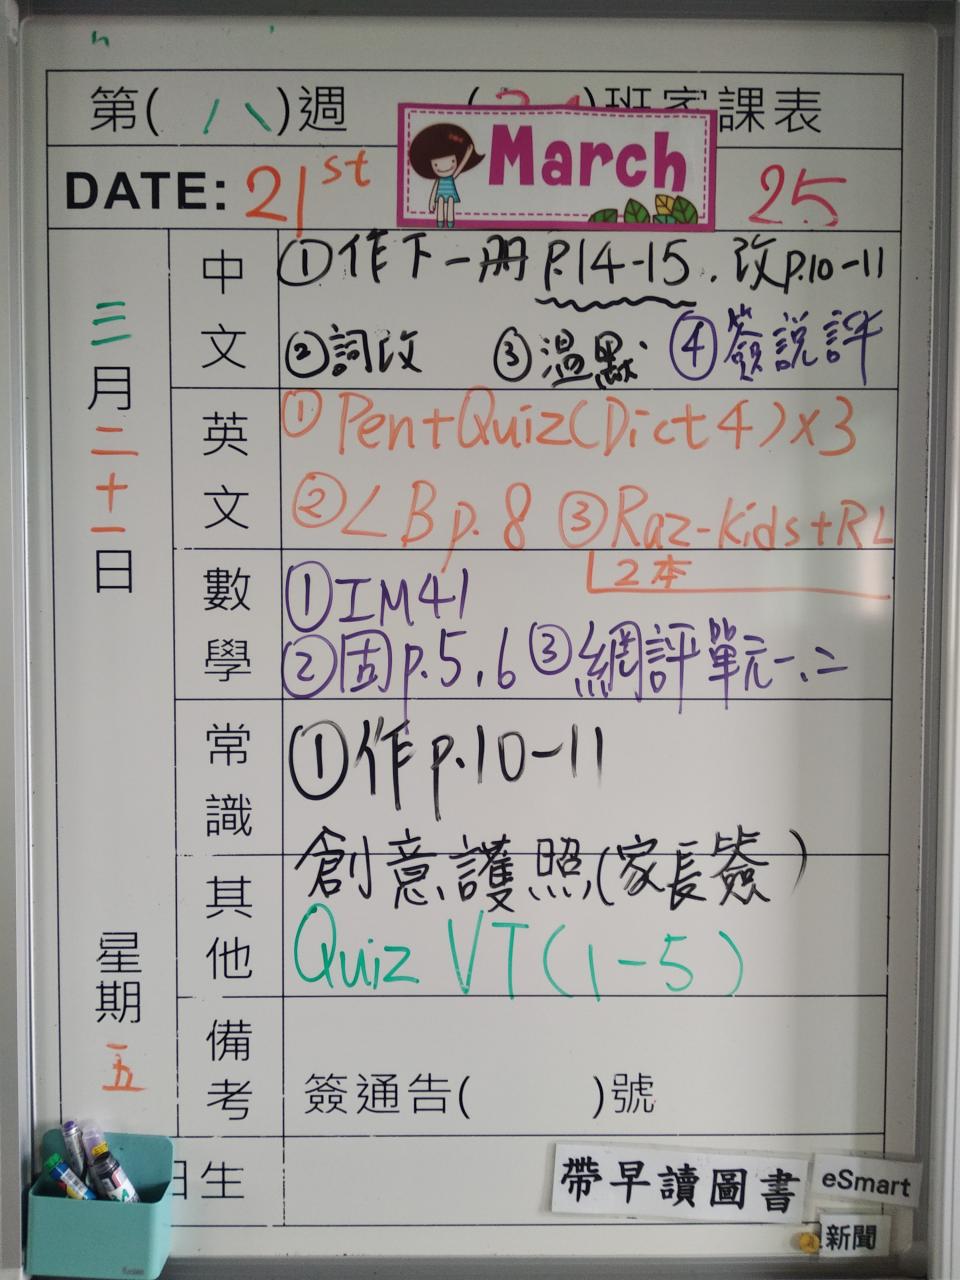 第(八)週 班家課表
DATE: 21st March 25
三月二十一日
星期五
中文
①作下一冊 p.14-15. 改p.10-11
②詞改 ③温默 ④簽說評
英文
① Pen+Quiz(Dict 4)x3
②LB p.8 ③Raz-Kids+RL
2本
數學
①IM41
②固p.5,6 ③網評單元一.二
常識
①作p.10-11
其他
創意護照(家長簽)
Quiz VT(1-5)
備考
簽通告( )號
日生
帶早讀圖書
eSmart
新聞